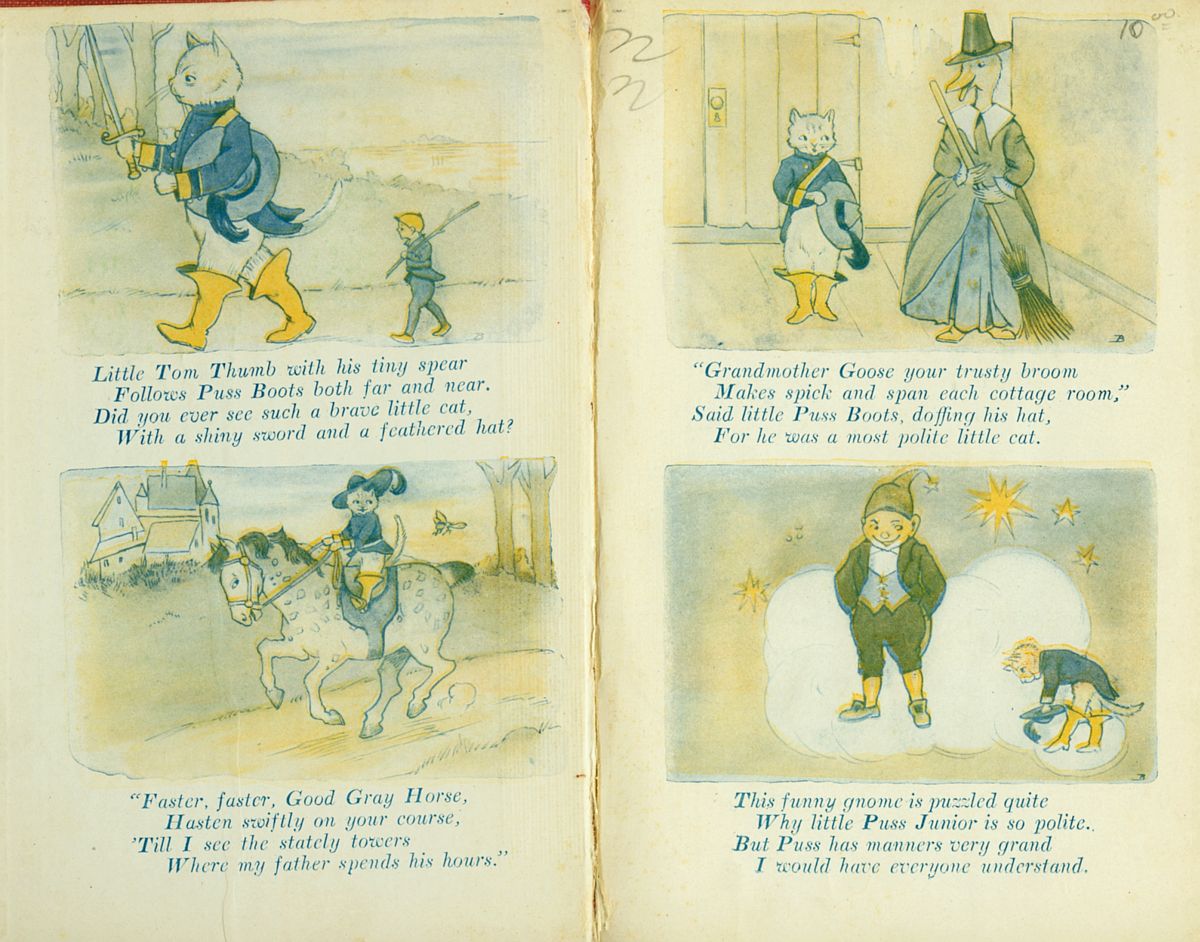 Little Tom Thumb with his tiny spear
Follows Puss Boots both far and near.
Did you ever see such a brave little cat,
With a shiny sword and a feathered hat?
"Faster, faster, Good Gray Horse,
Hasten swiftly on your course,
'Till I see the stately towers
Where my father spends his hours."
10 00
"Grandmother Goose your trusty broom
Makes spick and span each cottage room,"
Said little Puss Boots, doffing his hat,
For he was a most polite little cat.
This funny gnome is puzzled quite
Why little Puss Junior is so polite.
But Puss has manners very grand
I would have everyone understand.